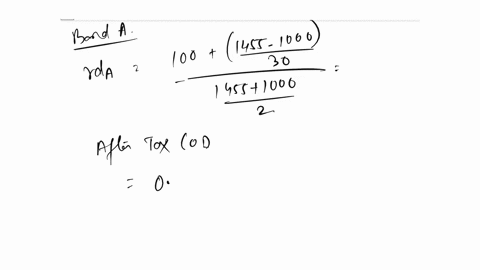 Bond A.
rdA = 100 + (1455 - 1000 / 30) / 1455 + 1000 / 2 =
After Tax COD
= 0.